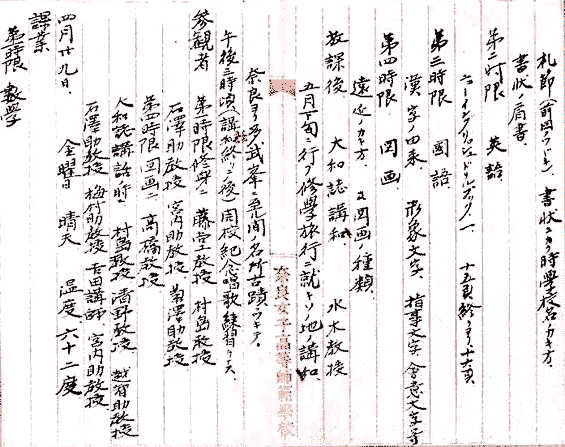 札節(前回ノツヾキ)、書状ニカク時學校名ノカキ方、
書状ノ肩書、
第二時限　英語、
十五頁終リヨリ十六頁、
第三時限　國語、
漢字ノ四素　形象文字、指事文字、會意文字等
第四時限　図画
遠近ノカキ方、又図画ノ種類、
放課後　大和誌講話、　水木教授
五月下旬ニ行フ修學旅行ニ就キソノ地ノ講話、
奈良ヨリ多武峯ニ至ル間ノ名所古蹟ノ
午後三時頃(講和終リシ後)開校紀念唱歌練習ヲナス、
参観者　第一時限修身ニ　藤堂教授　村島教授
石澤助教授　宮内助教授　菊澤助教授
第四時限図画ニ　高橋教授
大和誌講話ノ時ニ　村島教授　清野教授　越智助教授
石澤助教授　梅村助教授　吉田講師、宮内助教授、
四月廿九日、　金曜日　晴天　温度　六十二度
課業
第一時限　数学
奈良女子高等師範學校